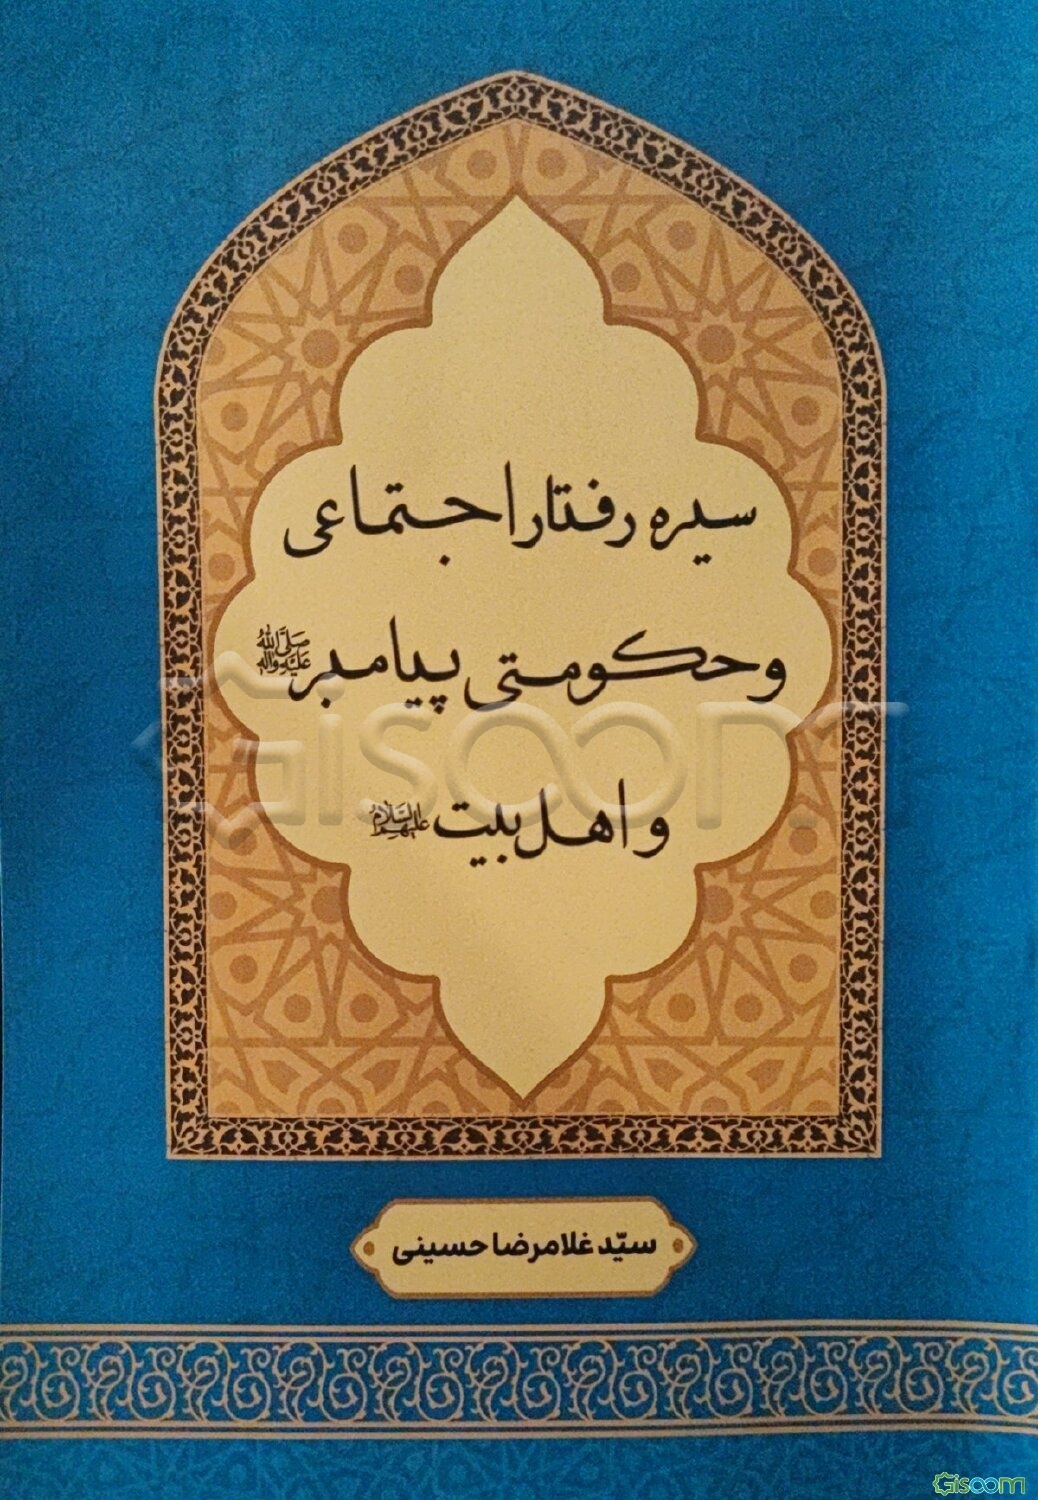 سیره رفتار اجتماعی
و حکومتی پیامبر صَلَّی اللهُ عَلَیْهِ وَآلِهِ
و اهل بیت عَلَیْهِمُ السَّلَامُ
Gisoom
سیّد غلامرضا حسینی
Gisoom